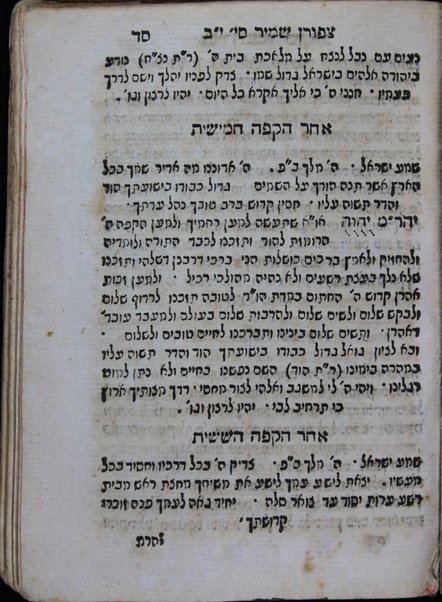 צפורן שמיר סי׳ י״ב סד
נצים עם נבל לנצח על מלאכת בית ה׳ (ר״ת נצ״ח) נודע
ביהודה אלהים בישראל גדול שמו · צדק לפניו יהלך וישם לדרך
פעמיו · חנני ה׳ כי אליך אקרא כל היום · יהיו לרצון וגו׳ ·
אחר הקפה חמישית
שמע ישראל · ה׳ מלך ב״פ · ה׳ אדוננו מה אדיר שמך בכל
הארץ אשר תנה הודך על השמים · גדול כבודו בישועתך הוד
והדר תשוה עליו · חסין קדוש ברב טובך נהל עדתך ·
יהר״מ יהוה או״א שתעשה למען רחמיך ולמען הקפה ה׳
הרומזת להוד ותזכנו לכבד התורה ולומדיה
ולהחזיק ולאמץ ברכים כושלות הני ברכי דרבנן דשלהי ותזכנו
שלא נלך בעצת רשעים ולא נהיה מהולכי רכיל · ולמען זכות
אהרן קדוש ה׳ החתום במדת הו״ד לטובה תזכנו לרדוף שלום
ולבקש שלום ולשים שלום ולהרבות שלום בעולם ולמעבד עובד׳
דאהרן · ותשים שלום בינינו ותברכנו לחיים טובים ולשלום ·
ובא לציון גואל גדול כבודו בישועתך הוד והדר תשוה עליו
במהרה בימינו (ר״ת הוד) השם נפשנו בחיים ולא נתן למוט
רגלינו · ויהי ה׳ לי למשגב ואלהי לצור מחסי · דרך מצותיך ארוץ
כי תרחיב לבי · יהיו לרצון וגו׳ ·
אחר הקפה הששית
שמע ישראל · ה׳ מלך ב״פ · צדיק ה׳ בכל דרכיו וחסיד בכל
מעשיו · יצאת לישע עמך לישע את משיחך מחצת ראש מבית
רשע ערות יסוד עד צואר סלה · יחיד גאה לעמך פנה זוכרי
קדושתך ·
יהרמ